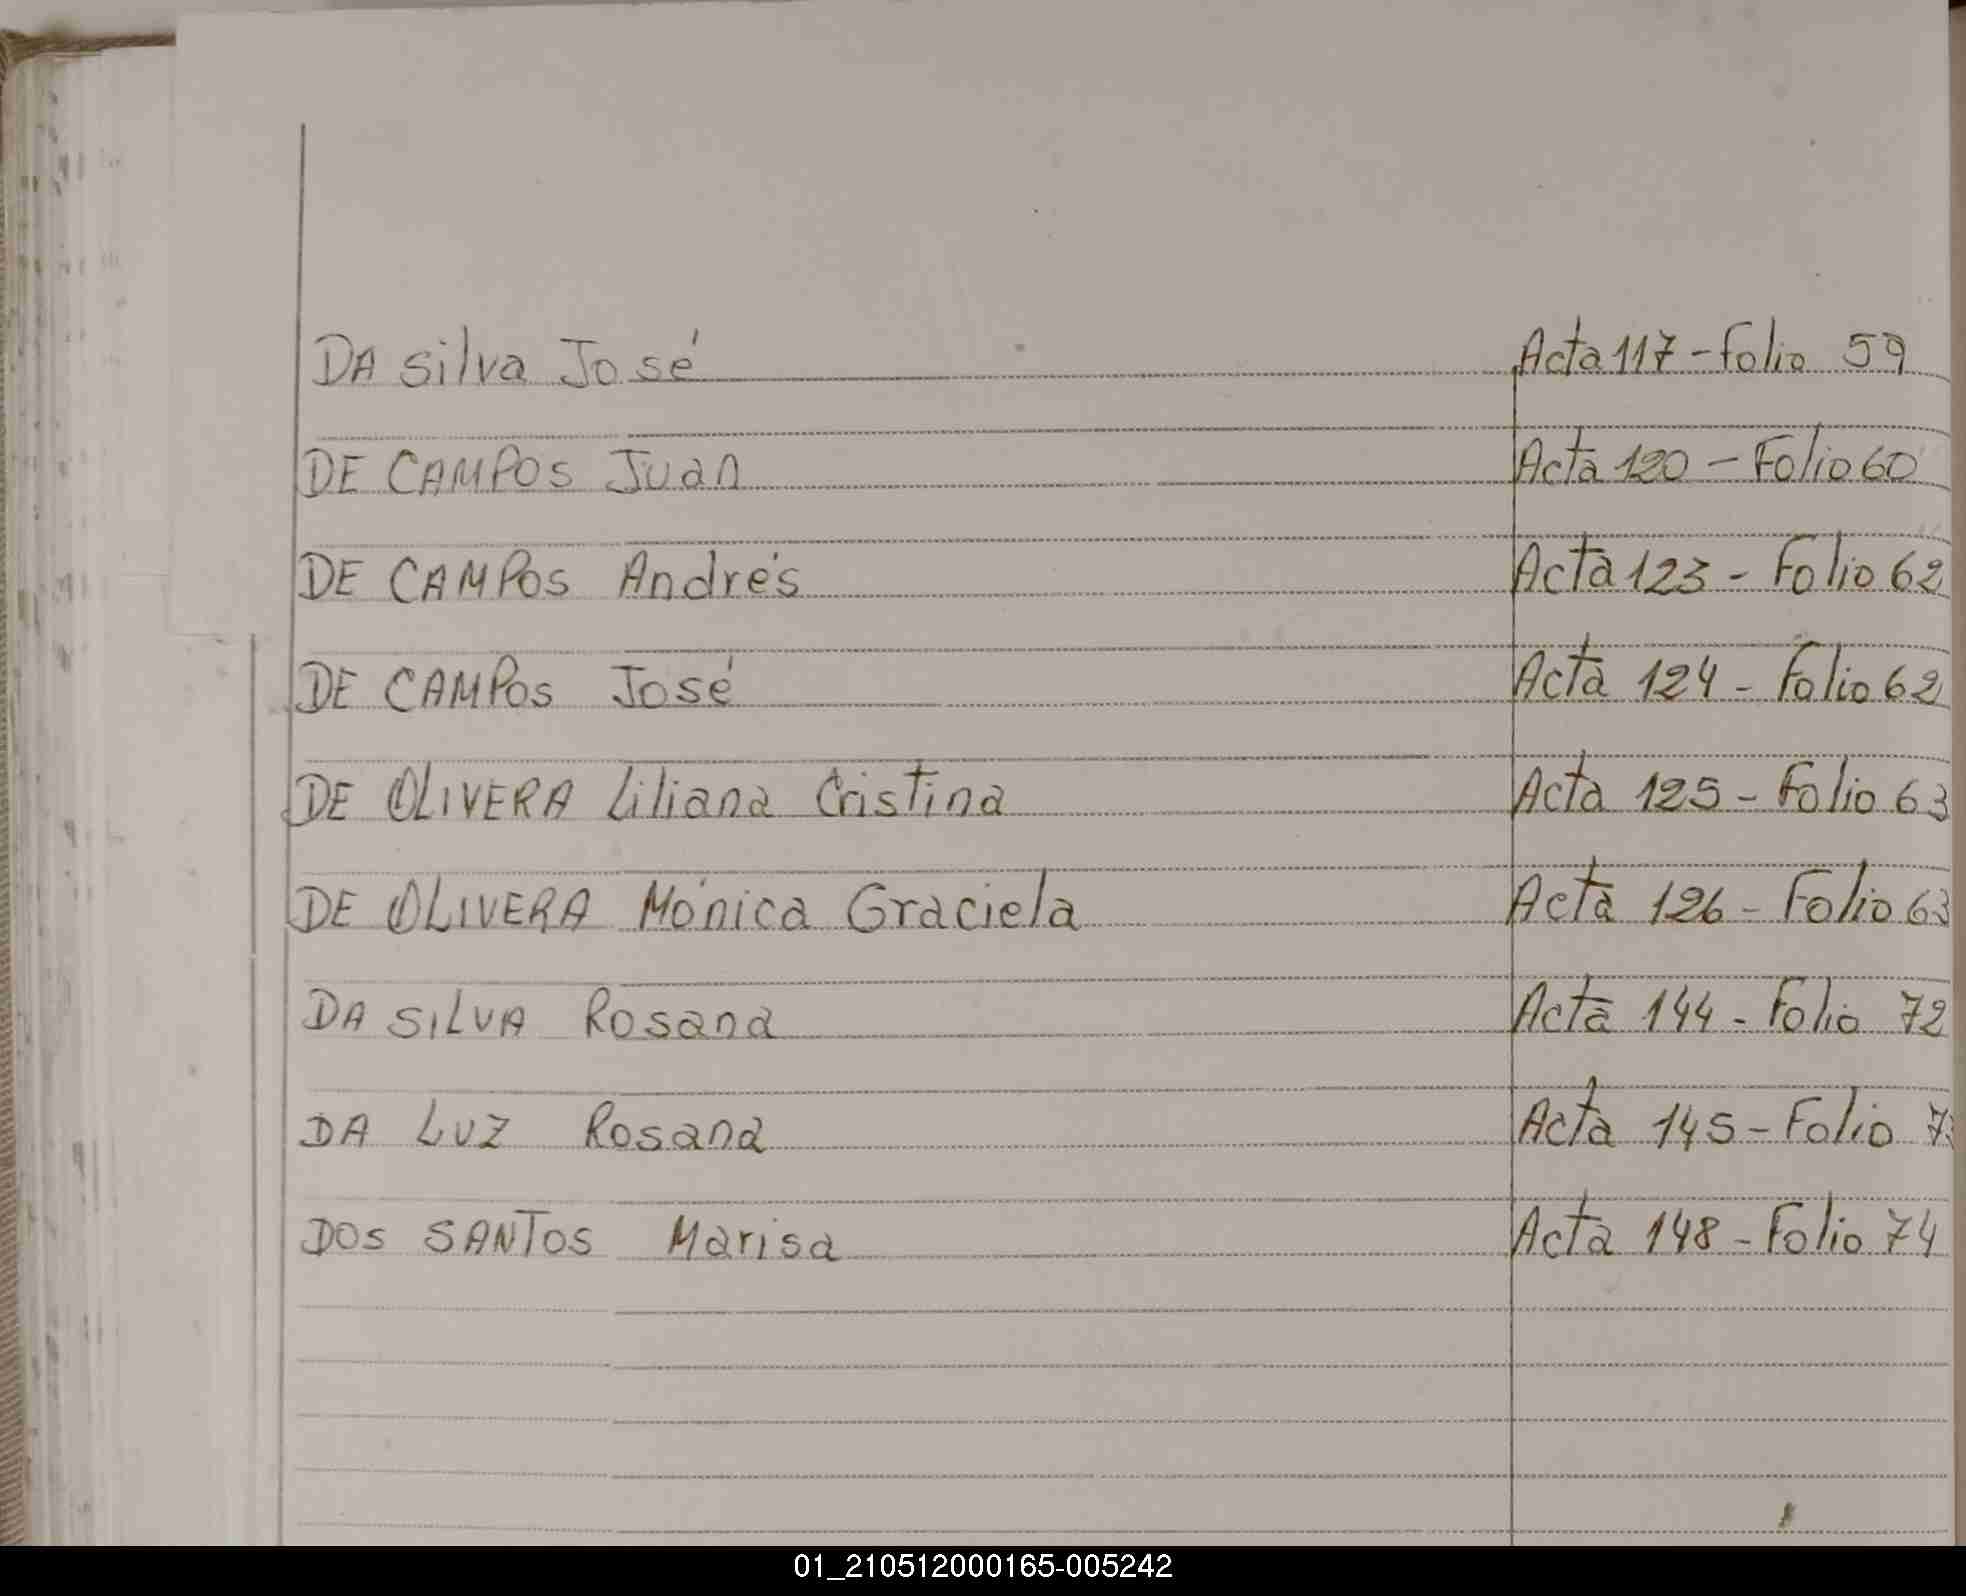 DA Silva José Acta 117 - Folio 59
DE CAMPOS Juan Acta 120 - Folio 60
DE CAMPOS Andrés Acta 123 - Folio 62
DE CAMPOS José Acta 124 - Folio 62
DE OLIVERA Liliana Cristina Acta 125 - Folio 63
DE OLIVERA Mónica Graciela Acta 126 - Folio 63
DA SILVA Rosana Acta 144 - Folio 72
DA LUZ Rosana Acta 145 - Folio
DOS SANTOS Marisa Acta 148 - Folio 74
01_210512000165-005242